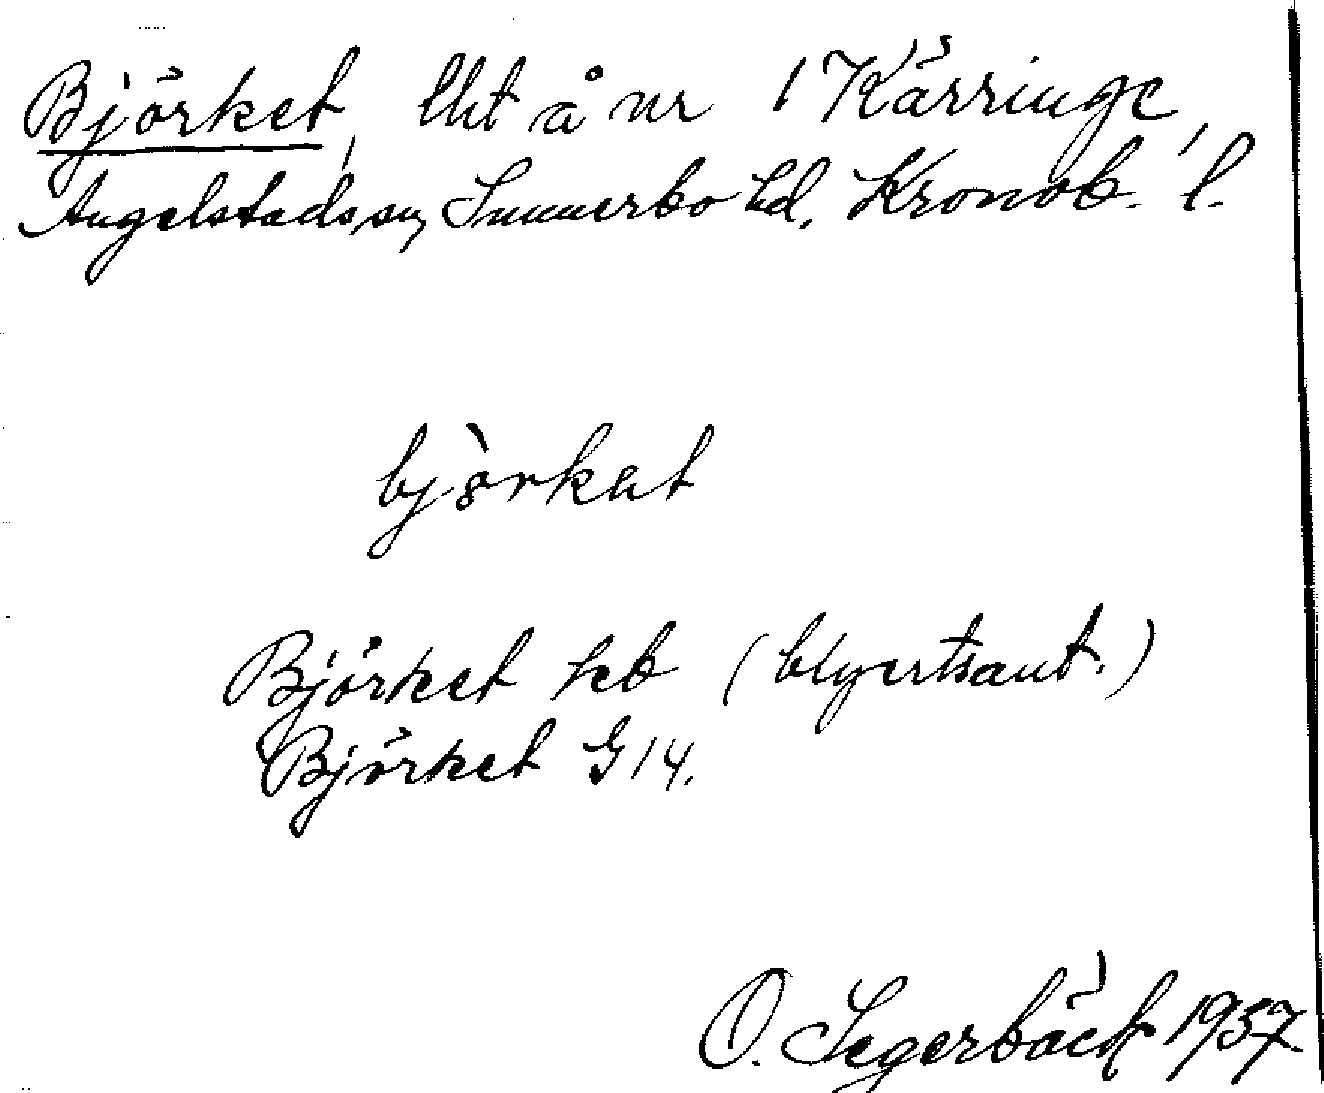 Björket, lht å nr 1 Kärringe,
Angelstads sn, Sunnerbo hd, Kronob. l.
bjòrkat
Björket hcb (blyertsant.)
Björket G 14.
O. Segerbäck 1957